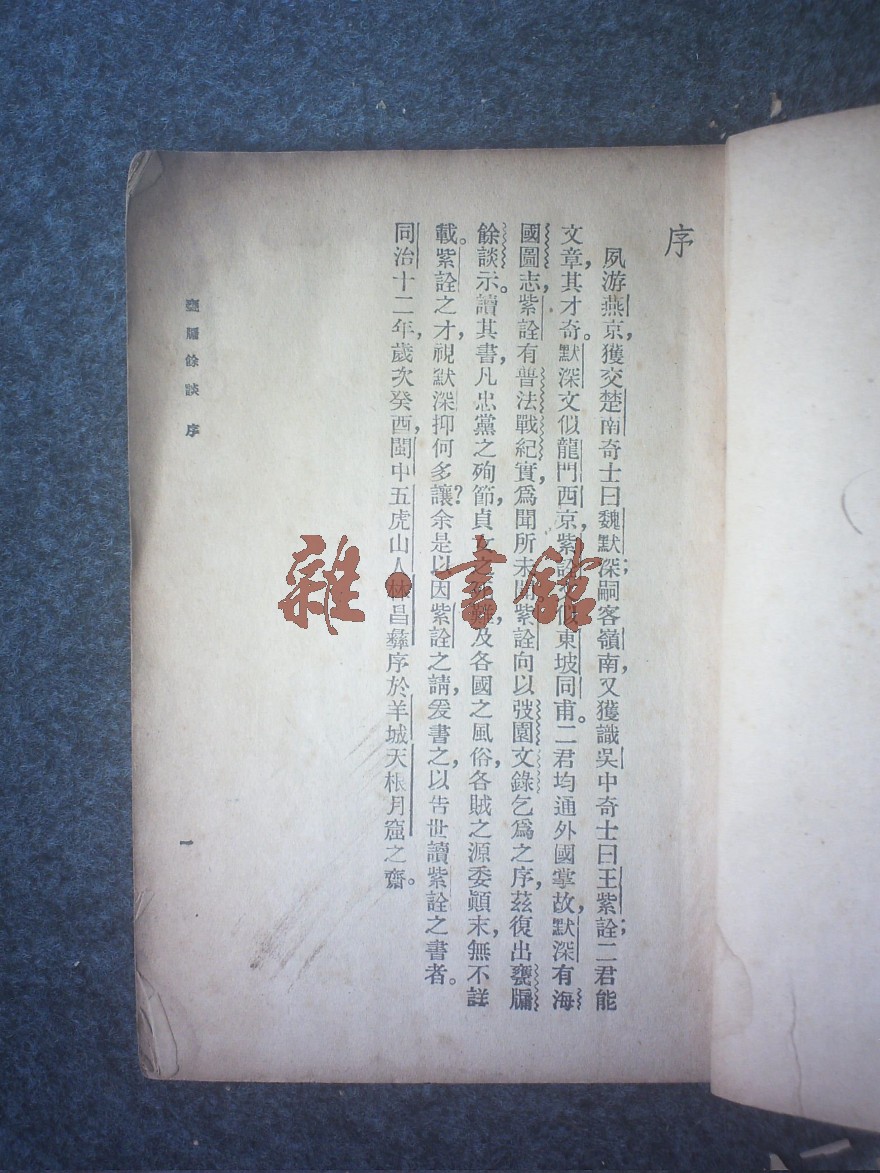 序
夙游燕京，獲交楚南奇士曰魏默深；嗣客嶺南，又獲識吳中奇士曰王紫詮；二君能
文章，其才奇。默深文似龍門西京，紫詮似東坡同甫。二君均通外國掌故，默深有海
國圖志，紫詮有普法戰紀，實爲聞所未聞。紫詮向以弢園文錄乞爲之序，茲復出甕牖
餘談示。讀其書，凡忠黨之殉節，貞女之死難，及各國之風俗，各賊之源委顚末，無不詳
載。紫詮之才，視默深抑何多讓？余是以因紫詮之請，爰書之，以告世讀紫詮之書者。
同治十二年，歲次癸酉，閩中五虎山人林昌彝序於羊城天根月窟之齋。
甕牖餘談 序
一
雜·書館